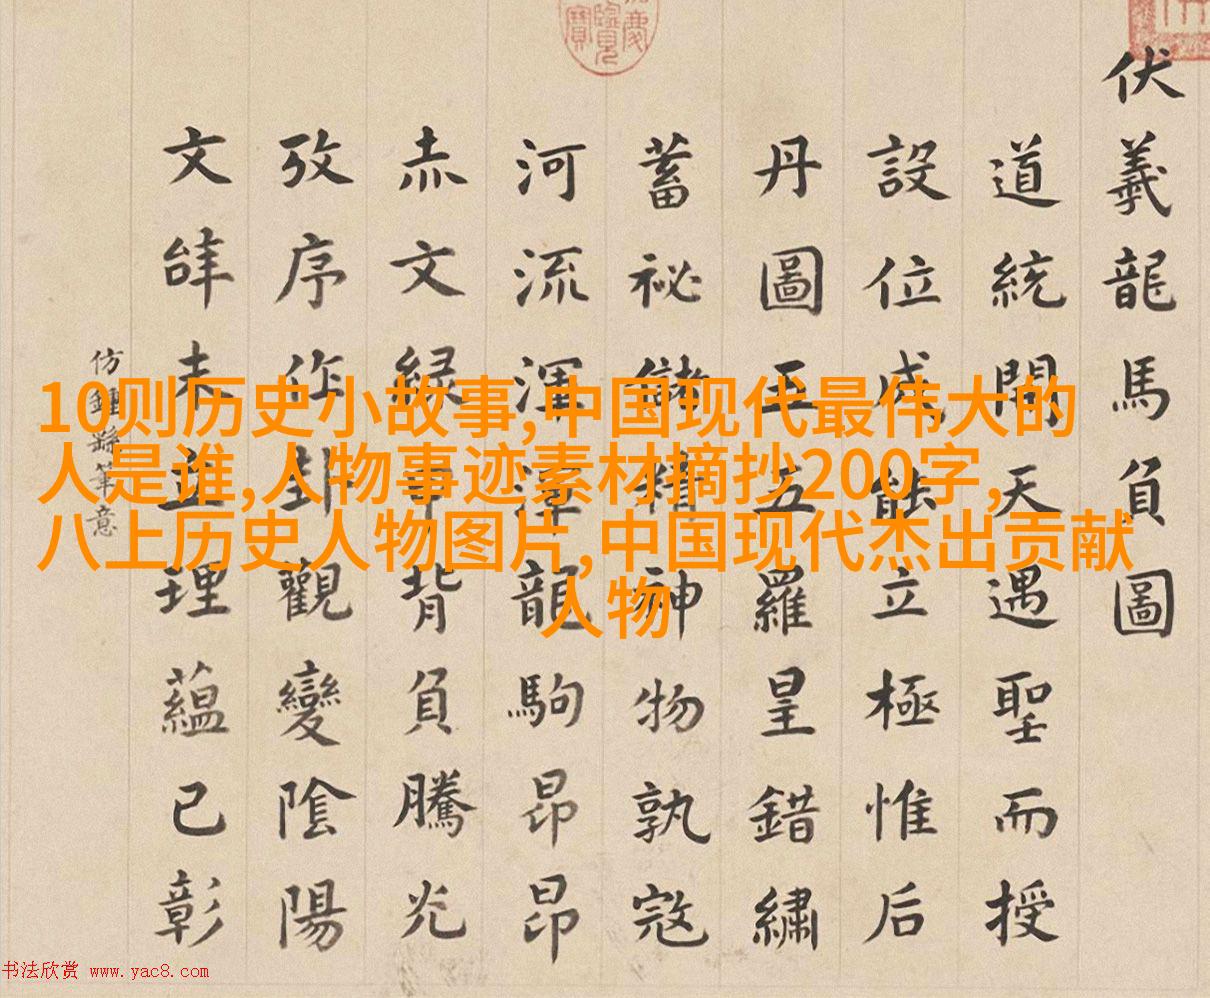 伏羲龍馬負圖
道統開天遇聖而授
設位成能立極惟后
丹圖五五羅星錯繡
蓄祕儲精神物孰寇
河流渾渾龍駒昂昂
赤文綠字背負騰光
攷序作卦觀變陰陽
文辝未理蘊已彰
仿鍾繇筆意
10则历史小故事,中国现代最伟大的
人是谁,人物事迹素材摘抄200字,
八上历史人物图片,中国现代杰出贡献
人物
书法欣赏 www.yac8.com